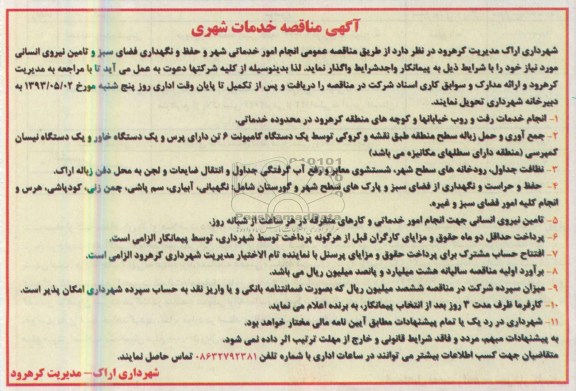 آگهی مناقصه خدمات شهری
شهرداری اراک مدیریت کرهرود در نظر دارد از طریق مناقصه عمومی انجام امور خدماتی شهر و حفظ و نگهداری فضای سبز و تامین نیروی انسانی
مورد نیاز خود را با شرایط ذیل به پیمانکار واجدشرایط واگذار نماید. لذا بدینوسیله از کلیه شرکتها دعوت به عمل می آید تا با مراجعه به مدیریت
کرهرود و ارائه مدارک و سوابق کاری اسناد شرکت در مناقصه را دریافت و پس از تکمیل تا پایان وقت اداری روز پنج شنبه مورخ ۱۳۹۳/۰۵/۰۲ به
دبیرخانه شهرداری تحویل نمایند.
۱- انجام خدمات رفت و روب خیابانها و کوچه های منطقه کرهرود در محدوده خدماتی.
۲- جمع آوری و حمل زباله سطح منطقه طبق نقشه و کروکی توسط یک دستگاه کامیونت ۶ تن دارای پرس و یک دستگاه خاور و یک دستگاه نیسان
کمپرسی (منطقه دارای سطلهای مکانیزه می باشد)
۳- نظافت جداول، رودخانه های سطح شهر، شستشوی معابر و رفع آب گرفتگی جداول و انتقال ضایعات و لجن به محل دفن زباله اراک.
۴- حفظ و حراست و نگهداری از فضای سبز و پارک های سطح شهر و گورستان شامل: نگهبانی، آبیاری، سم پاشی، چمن زنی، کودپاشی، هرس و
انجام کلیه امور فضای سبز و غیره.
۵- تامین نیروی انسانی جهت انجام امور خدماتی و کارهای متفرقه در هر ساعت از شبانه روز.
۶- پرداخت حداقل دو ماه حقوق و مزایای کارگران قبل از هرگونه پرداخت توسط شهرداری، توسط پیمانکار الزامی است.
۷- افتتاح حساب مشترک برای پرداخت حقوق و مزایای پرسنل با نماینده تام الاختیار مدیریت شهرداری کرهرود الزامی است.
۸- برآورد اولیه مناقصه سالیانه هشت میلیارد و پانصد میلیون ریال می باشد.
۹- میزان سپرده شرکت در مناقصه ششصد میلیون ریال که بصورت ضمانتنامه بانکی و یا واریز نقد به حساب سپرده شهرداری امکان پذیر است.
۱۰- کارفرما ظرف مدت ۳ روز بعد از انتخاب پیمانکار، به برنده اعلام می نماید.
۱۱- شهرداری در رد یک یا تمام پیشنهادات مطابق آیین نامه مالی مختار خواهد بود.
به پیشنهادات مبهم، مردد و فاقد شرایط قانونی و خارج از مهلت ترتیب اثر داده نمی شود.
متقاضیان جهت کسب اطلاعات بیشتر می توانند در ساعات اداری با شماره تلفن ۰۸۶۳۲۷۹۲۳۸۱ تماس حاصل نمایند.
شهرداری اراک- مدیریت کرهرود